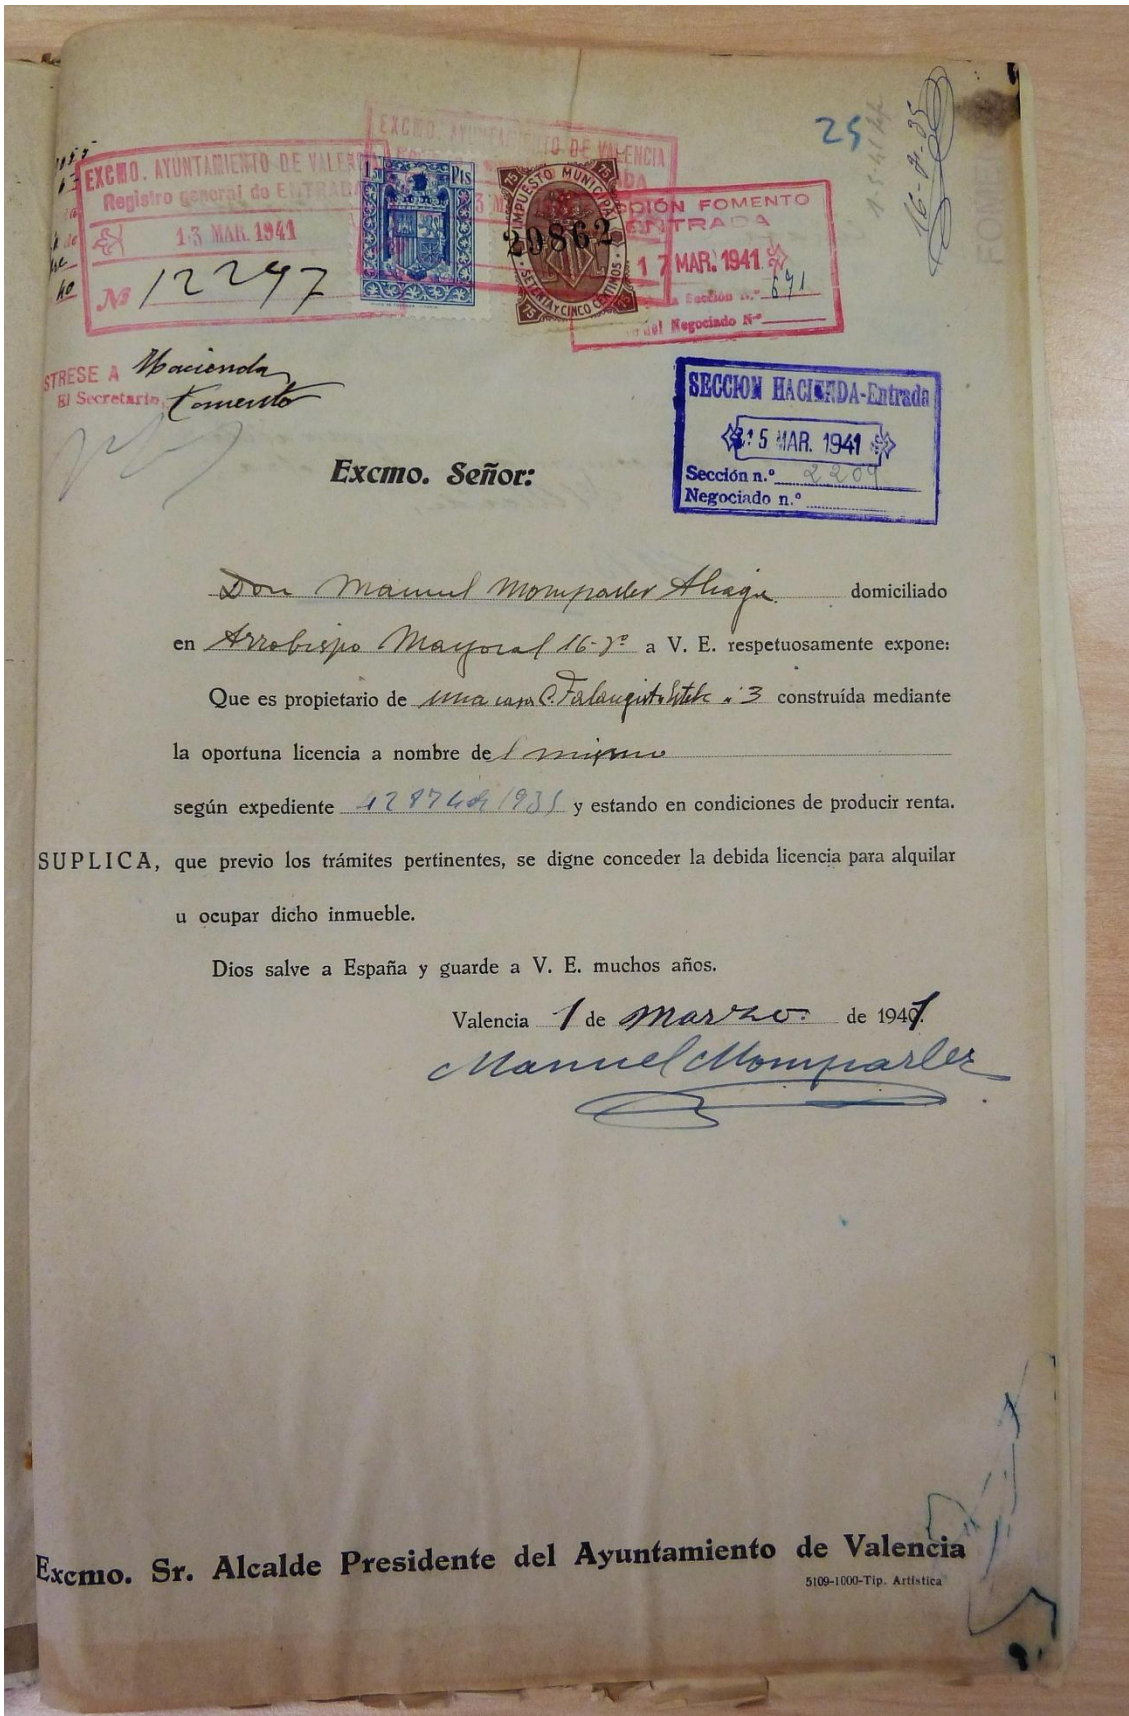 25
16-7-35
EXCMO. AYUNTAMIENTO DE VALENCIA
Registro general de ENTRADA
13 MAR. 1941
Nº 12297
EXCMO. AYUNTAMIENTO DE VALENCIA
Pts
IMPUESTO MUNICIPAL
75
29862
SETENTA Y CINCO CENTIMOS
75 75
FOMENTO
ENTRADA
17 MAR. 1941
Sección n.º 671
del Negociado Nº
STRESE A Hacienda
El Secretario, Fomento
SECCION HACIENDA-Entrada
15 MAR. 1941
Sección n.º 2209
Negociado n.º
Excmo. Señor:
Don Manuel Momparler Aliaga domiciliado
en Arzobispo Mayoral 16- a V. E. respetuosamente expone:
Que es propietario de una casa C. Falangista Esteve n 3 construída mediante
la oportuna licencia a nombre del mismo
según expediente de 1935 y estando en condiciones de producir renta.
SUPLICA, que previo los trámites pertinentes, se digne conceder la debida licencia para alquilar
u ocupar dicho inmueble.
Dios salve a España y guarde a V. E. muchos años.
Valencia 1 de Marzo de 1941.
Manuel Momparler
Excmo. Sr. Alcalde Presidente del Ayuntamiento de Valencia
5109-1000-Tip. Artística